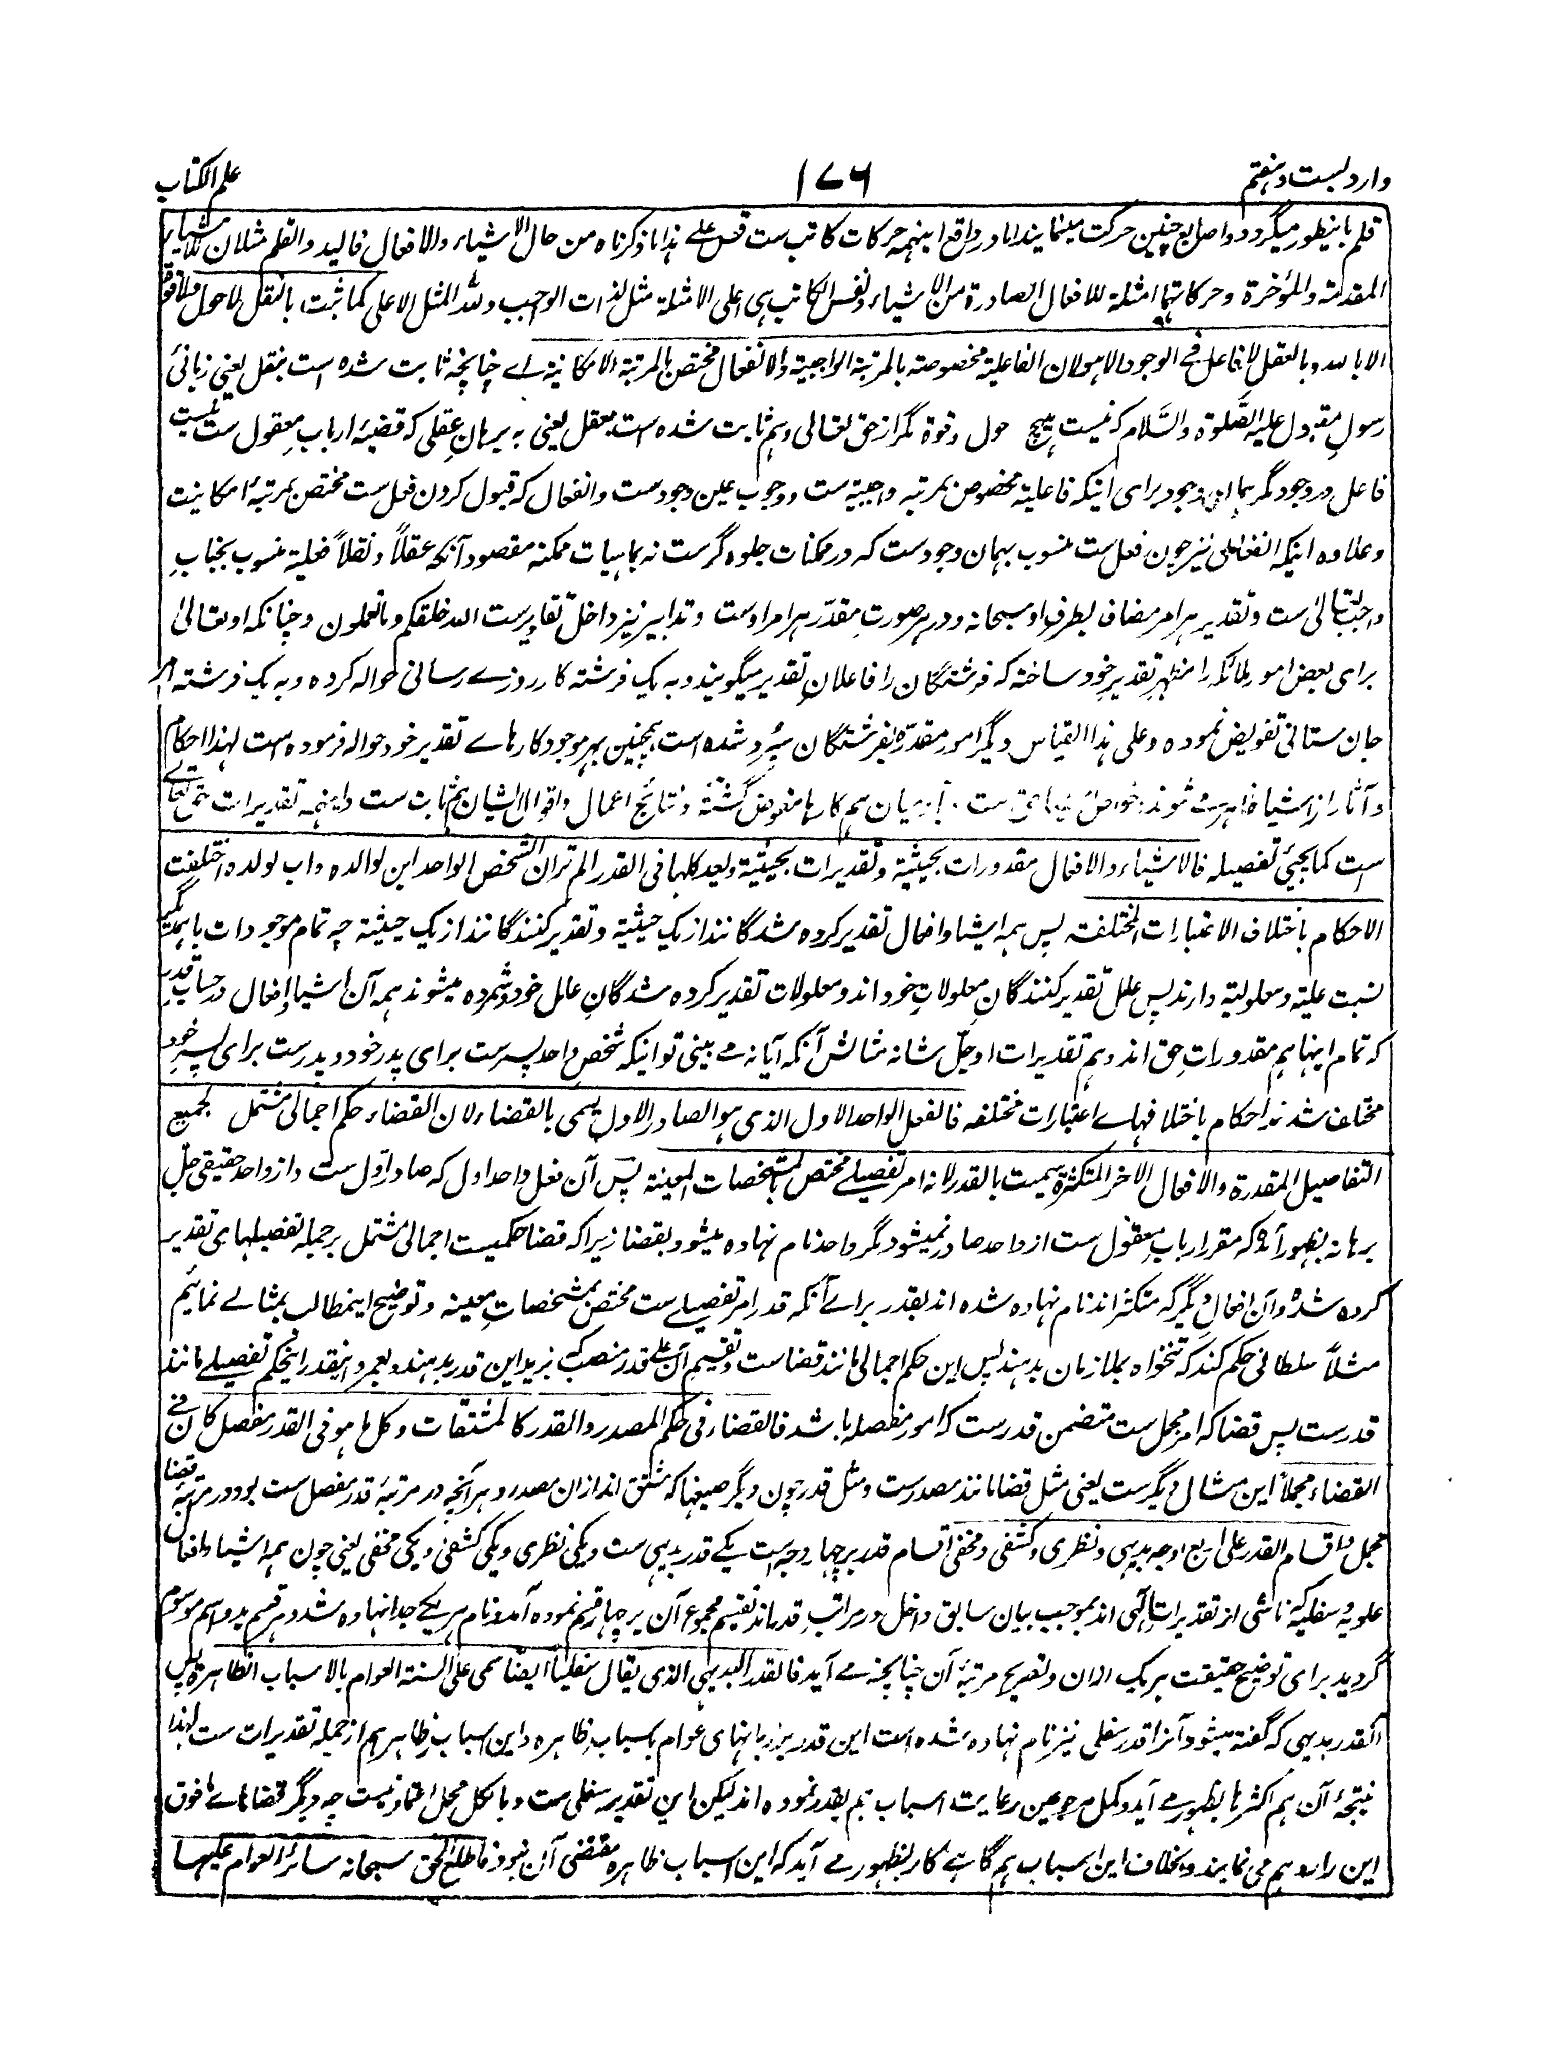 وارد بست و هفتم ۱۷۶ علم الکتاب
قلم باینطور میگردد و اصابع چنین حرکت مینمایند اما در واقع اینهمه حرکات کاتب ست قس علی هذا ما ذکرناه من حال الاشیاء والافعال فالید والقلم مثلان للاشیاء
المقدمة والمؤخرة وحرکاتهما امثلة للافعال الصادرة من الاشیاء ونفس الکاتب هی اعلی الامثلة مثل لذات الواجب ولله المثل الاعلی کما ثبت بالنقل لاحول ولاقوة
الا بالله وبالعقل لا فاعل فی الوجود الا هو لان الفاعلیة مخصوصة بالمرتبة الواجبیة والانفعال مختص بالمرتبة الامکانیة اے چنانچه ثابت شده است بنقل یعنی زبانئ
رسول مقبول علیه الصلوة والسلام که نیست هیچ حول و قوة مگر از حق تعالی و هم ثابت شده است بعقل یعنی به برهان عقلی که قضیۂ ارباب معقول ست نیست
فاعل در وجود مگر همان وجود برای اینکه فاعلیة مخصوص بمرتبه واجبیة ست و وجوب عین وجود ست و انفعال که قبول کردن فعل ست مختص بمرتبۂ امکانیت
و علاوه اینکه انفعال نیز چون فعل ست منسوب بهمان وجود ست که در ممکنات جلوه گر ست نه بماهیات ممکنه مقصود آنکه عقلاً و نقلاً فعلیة منسوب بجناب
واجب تعالیٰ ست و تقدیر هر امر مضاف بطرف او سبحانه و در هر صورت مقدر هر امر اوست و تدابیر نیز داخل تقادیر ست الله خلقکم وما تعملون و چنانکه او تعالیٰ
برای بعض امور ملائکه را مظهر تقدیر خود ساخته که فرشتگان را فاعلان تقدیر میگویند و به یک فرشته کار روزے رسانی حواله کرده و به یک فرشته امر
جان ستانی تفویض نموده و علی هذا القیاس دیگر امور مقدره بفرشتگان سپرد شده است همچنین بهر موجود کارهاے تقدیر خود حواله فرموده است لهذا احکام
و آثار از اشیا ظاهر مے شوند و خواص ست کارها مفوض گشته و نتائج اعمال و اقوال ایشان هم ثابت ست و اینهمه تقدیرات حق تعالے
است کما یجیئ تفصیله فالاشیاء والافعال مقدورات بحیثیة وتقدیرات بحیثیة ویعد کلها فی القدر الم تر ان الشخص الواحد ابن لوالده واب لولده واختلفت
الاحکام باختلاف الاعتبارات المختلفة پس همه اشیا و افعال تقدیر کرده شدگانند از یک حیثیة و تقدیر کنندگانند از یک حیثیة چه تمام موجودات باهمدیگر
نسبت علیة و معلولیة دارند پس علل تقدیر کنندگان معلولات خود اند و معلولات تقدیر کرده شدگان علل خود و شمرده میشوند همه آن اشیا و افعال در حساب قدر
که تمام اینها هم مقدورات حق اند و هم تقدیرات او جل شانه مثالش آنکه آیا نه مے بینی تو اینکه شخص واحد پسرست برای پدر خود و پدرست برای پسر خود
مختلف شدند احکام باختلافهاے اعتبارات مختلفه فالفعل الواحد الاول الذی هو الصادر الاول یسمی بالقضاء لان القضاء حکم اجمالی مشتمل لجمیع
التفاصیل المقدرة والافعال الاخر المتکثرة سمیت بالقدر لانه امر تفصیلے مختص بالمشخصات المعینة پس آن فعل واحد اول که صادر اول ست و از واحد حقیقی جل
برهانه بظهور آمد که مقرر ارباب معقول ست از واحد صادر نمیشود مگر واحد نام نهاده میشود بقضا زیرا که قضا حکمیست اجمالی مشتمل بر جمله تفصیلهای تقدیر
کرده شده و آن افعال دیگر که متکثر اند نام نهاده شده اند بقدر براے آنکه قدر امر تفصیلے ست مختص بمشخصات معینه و توضیح اینمطالب بمثالے نمائیم
مثلاً سلطانی حکم کند که تنخواه بملازمان بدهند پس این حکم اجمالی مانند قضاست و تقسیم آن علی قدر منصب که بزید این قدر بدهند و بعمرو اینقدر اینحکم تفصیلے مانند
قدرست پس قضا که امر مجمل ست متضمن قدرست که امور مفصله باشد فالقضاء فی حکم المصدر والقدر کالمشتقات وکل ما هو فی القدر مفصل کان فے
القضاء مجملاً این مثال دیگرست یعنی مثل قضا مانند مصدرست و مثل قدر چون دیگر صیغها که مشتق اند از ان مصدر و هر آنچه در مرتبۂ قدر مفصل ست بود در مرتبۂ قضا
مجمل واقسام القدر علی اربع اوجه بدیهی ونظری وکشفی ومخفی اقسام قدر بر چهار وجه است یکے قدر بدیهی ست و یکی نظری و یکی کشفی و یکی مخفی یعنی چون همه اشیا و افعال
علویه و سفلیه که ناشی از تقدیرات الٰهی اند بموجب بیان سابق داخل در مراتب قدر ماند تقسیم مجموع آن بر چهار قسم نموده آمد و نام هر یکے جدا نهاده شد و هر قسم بدو اسم موسوم
گردید برای توضیح حقیقت هر یک از ان و تصریح مرتبۂ آن چنانچه مے آید فالقدر البدیهی الذی یقال سفلیاً ایضاً سمی علی السنة العوام بالاسباب الظاهرة پس
القدر بدیهی که گفته میشود آنرا قدر سفلی نیز نام نهاده شده است این قدر بر زبانهای عوام باسباب ظاهره و این اسباب ظاهر هم از جمله تقدیرات ست لهذا
نتیجۂ آن هم اکثرها بظهور مے آید و کمل مرجوعین رعایت اسباب هم بقدر نموده اند لیکن این تقدیر سفلی ست و بالکل محل اعتماد نیست چه دیگر قضاهاے مافوق
این را رد هم می نمایند و بخلاف این اسباب هم گاهے کار بظهور مے آید که این اسباب ظاهره مقتضی آن نبود فاطلع الحق سبحانه سائر العوام علیها